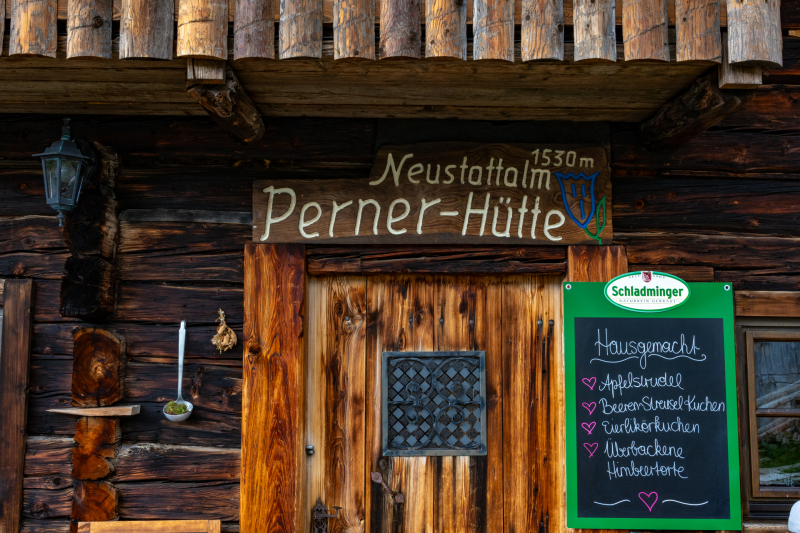 Neustattalm 1530 m
Perner-Hütte
Schladminger
NATURREIN GEBRAUT
Hausgemacht
Apfelstrudel
Beeren-Streusel-Kuchen
Eierlikörkuchen
Überbackene
Himbeertorte